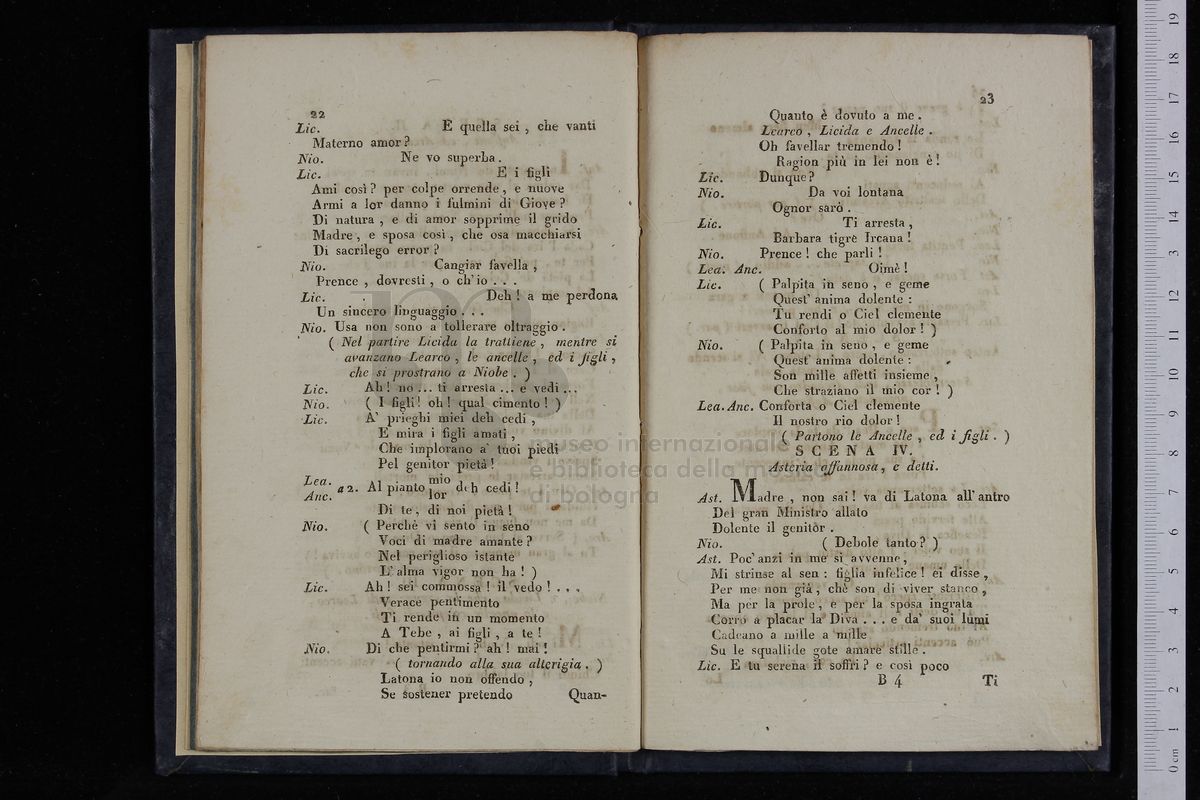 22
Lic. E quella sei , che vanti
Materno amor?
Nio. Ne vo superba .
Lic. E i figli
Ami così? per colpe orrende , e nuove
Armi a lor danno i fulmini di Giove ?
Di natura , e di amor sopprime il grido
Madre , e sposa così , che osa macchiarsi
Di sacrilego error ?
Nio. Cangiar favella ,
Prence , dovresti , o ch'io . . .
Lic. Deh ! a me perdona
Un sincero linguaggio . . .
Nio. Usa non sono a tollerare oltraggio .
( Nel partire Licida la trattiene , mentre si
avanzano Learco , le ancelle , ed i figli ,
che si prostrano a Niobe . )
Lic. Ah ! no ... ti arresta ... e vedi ...
Nio. ( I figli ! oh ! qual cimento ! )
Lic. A' prieghi miei deh cedi ,
E mira i figli amati ,
Che implorano a' tuoi piedi
Pel genitor pietà !
Lea. Anc. a 2. Al pianto mio lor deh cedi !
Di te , di noi pietà !
Nio. ( Perchè vi sento in seno
Voci di madre amante ?
Nel periglioso istante
L' alma vigor non ha ! )
Lic. Ah ! sei commossa ! il vedo ! . . .
Verace pentimento
Ti rende in un momento
A Tebe , ai figli , a te !
Nio. Di che pentirmi ? ah ! mai !
( tornando alla sua alterigia . )
Latona io non offendo ,
Se sostener pretendo
Quan-
23
Quanto è dovuto a me .
Learco , Licida e Ancelle .
Oh favellar tremendo !
Ragion più in lei non è !
Lic. Dunque ?
Nio. Da voi lontana
Ognor sarò .
Lic. Ti arresta ,
Barbara tigre Ircana !
Nio. Prence ! che parli !
Lea. Anc. Oimè !
Lic. ( Palpita in seno , e geme
Quest' anima dolente :
Tu rendi o Ciel clemente
Conforto al mio dolor ! )
Nio. ( Palpita in seno , e geme
Quest' anima dolente :
Son mille affetti insieme ,
Che straziano il mio cor ! )
Lea. Anc. Conforta o Ciel clemente
Il nostro rio dolor !
( Partono le Ancelle , ed i figli . )
SCENA IV.
Asteria affannosa , e detti.
Ast. Madre , non sai ! va di Latona all' antro
Del gran Ministro allato
Dolente il genitor .
Nio. ( Debole tanto ? )
Ast. Poc' anzi in me si avvenne ,
Mi strinse al sen : figlia infelice ! ei disse ,
Per me non già , chè son di viver stanco ,
Ma per la prole , e per la sposa ingrata
Corro a placar la Diva . . . e da' suoi lumi
Cadeano a mille a mille
Su le squallide gote amare stille .
Lic. E tu serena il soffri ? e così poco
B 4
Ti
museo internazionale
e biblioteca della musica
di bologna
0 cm 1 2 3 4 5 6 7 8 9 10 11 12 13 14 15 16 17 18 19